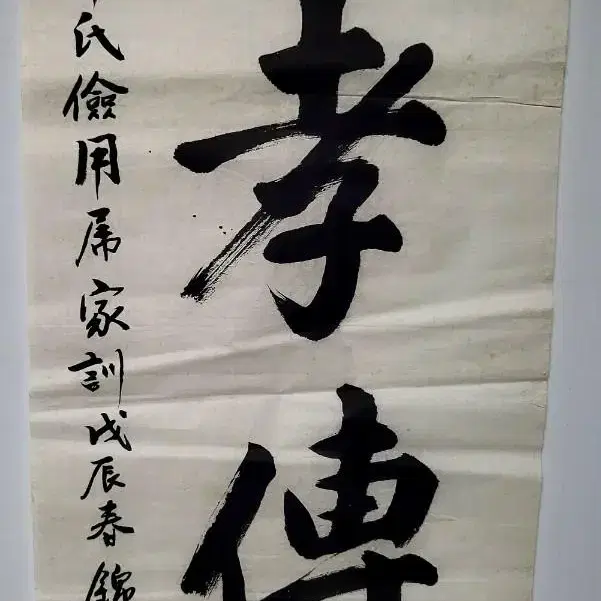 孝傳
氏儉用席家訓戊辰春錦